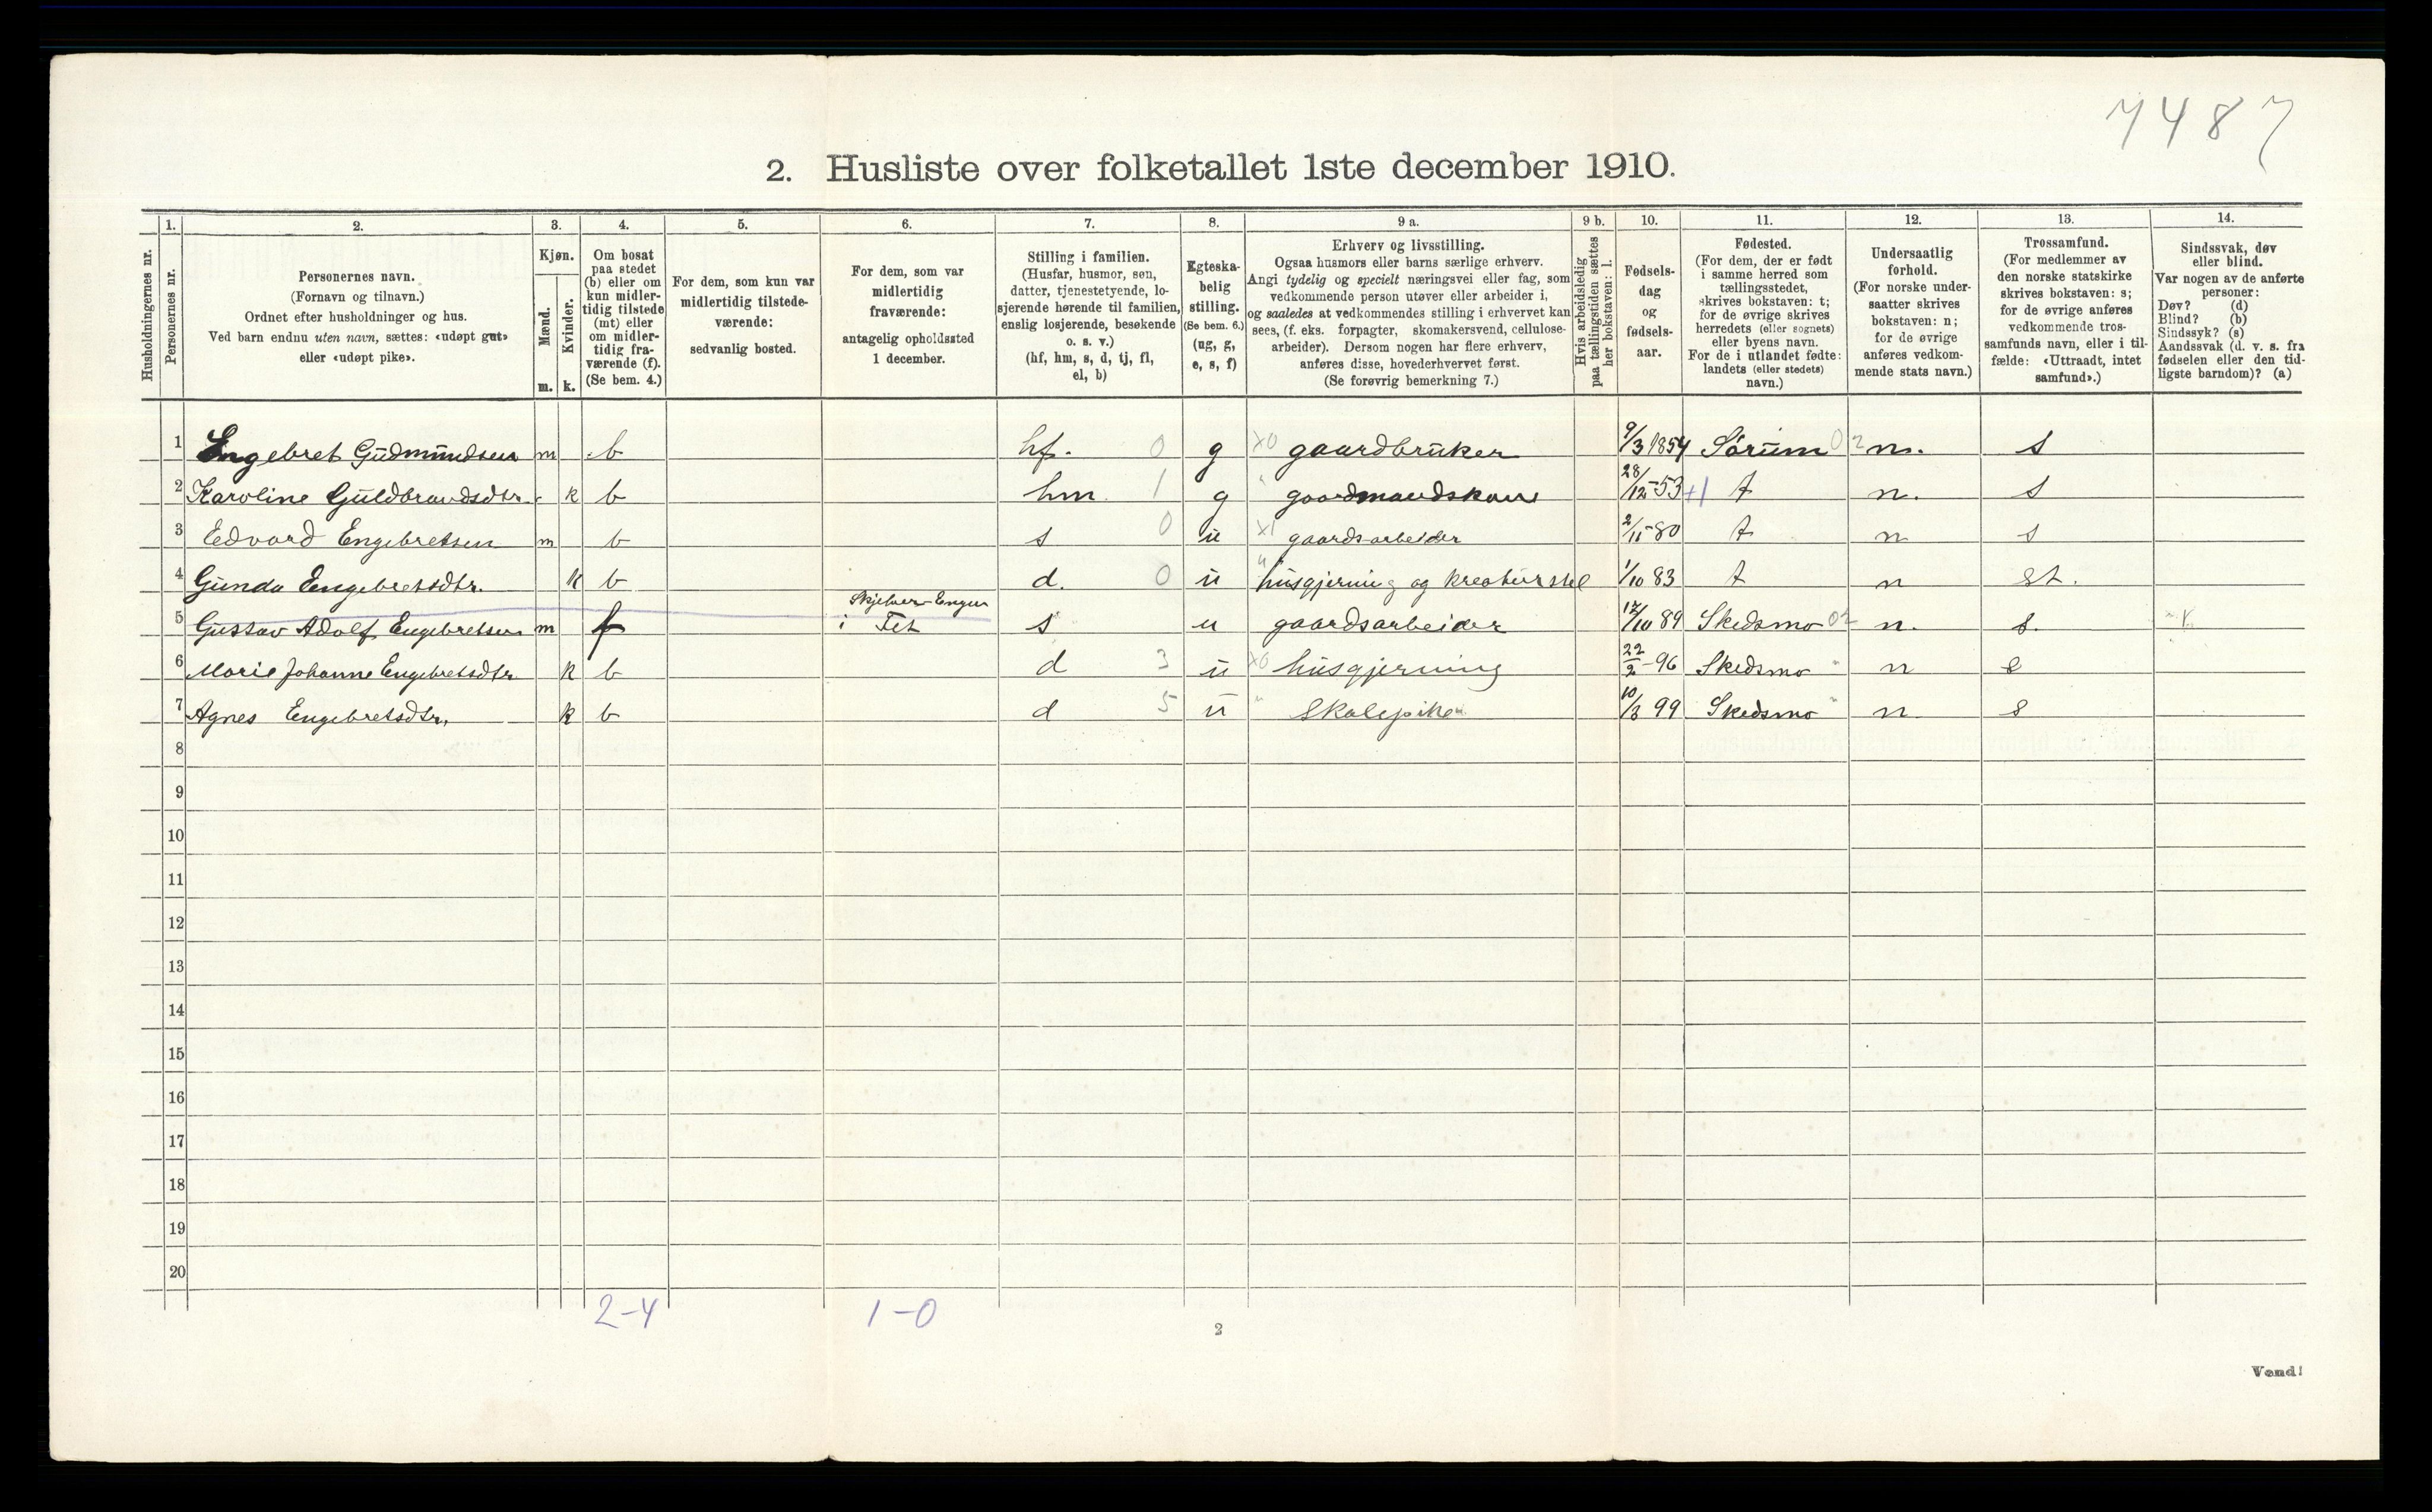 7487
2. Husliste over folketallet 1ste december 1910.
Husholdningernes nr.
1.
Personernes nr.
2.
Personernes navn.
(Fornavn og tilnavn.)
Ordnet efter husholdninger og hus.
Ved barn endnu uten navn, sættes: «udøpt gut»
eller «udøpt pike».
3.
Kjøn.
Mænd.
m.
Kvinder.
k.
4.
Om bosat
paa stedet
(b) eller om
kun midler-
tidig tilstede
(mt) eller
om midler-
tidig fra-
værende (f).
(Se bem. 4.)
5.
For dem, som kun var
midlertidig tilstede-
værende:
sedvanlig bosted.
6.
For dem, som var
midlertidig
fraværende:
antagelig opholdssted
1 december.
7.
Stilling i familien.
(Husfar, husmor, søn,
datter, tjenestetyende, lo-
sjerende hørende til familien,
enslig losjerende, besøkende
o. s. v.)
(hf, hm, s, d, tj, fl,
el, b)
8.
Egteska-
belig
stilling.
(Se bem. 6.)
(ug, g,
e, s, f)
9 a.
Erhverv og livsstilling.
Ogsaa husmors eller barns særlige erhverv.
Angi tydelig og specielt næringsvei eller fag, som
vedkommende person utøver eller arbeider i,
og saaledes at vedkommendes stilling i erhvervet kan
sees, (f. eks. forpagter, skomakersvend, cellulose-
arbeider). Dersom nogen har flere erhverv,
anføres disse, hovederhvervet først.
(Se forøvrig bemerkning 7.)
9 b.
Hvis arbeidsledig
paa tællingstiden sættes
her bokstaven: l.
10.
Fødsels-
dag
og
fødsels-
aar.
11.
Fødested.
(For dem, der er født
i samme herred som
tællingsstedet,
skrives bokstaven: t;
for de øvrige skrives
herredets (eller sognets)
eller byens navn.
For de i utlandet fødte:
landets (eller stedets)
navn.)
12.
Undersaatlig
forhold.
(For norske under-
saatter skrives
bokstaven: n;
for de øvrige
anføres vedkom-
mende stats navn.)
13.
Trossamfund.
(For medlemmer av
den norske statskirke
skrives bokstaven: s;
for de øvrige anføres
vedkommende tros-
samfunds navn, eller i til-
fælde: «Uttraadt, intet
samfund».)
14.
Sindssvak, døv
eller blind.
Var nogen av de anførte
personer:
Døv? (d)
Blind? (b)
Sindssyk? (s)
Aandssvak (d. v. s. fra
fødselen eller den tid-
ligste barndom)? (a)
1 Engebret Gudmundsen m b hf. 0 g x0 gaardbruker 9/3 1854 Sørum 02 n. s
2 Karoline Guldbrandsdtr. k b hm 1 g " gaardmandskone 28/12-53 +1 t n. s
3 Edvard Engebretsen m b s 0 u x1 gaardsarbeider 2/11-80 t n s
4 Gunda Engebretsdtr. k b d. 0 u " husgjerning og kreaturstel 1/10 83 t n st.
5 Gustav Adolf Engebretsen m f Skjelver-Engen
i Fet s u gaardsarbeider 17/10 89 Skedsmo 02 n. s.
6 Marie Johanne Engebretsdtr k b d 3 u x6 husgjerning 22/2-96 Skedsmo " n s
7 Agnes Engebretsdtr. k b d 5 u " Skolepike 10/3 99 Skedsmo " n s
8
9
10
11
12
13
14
15
16
17
18
19
20
2-4 1-0
2
Vend!